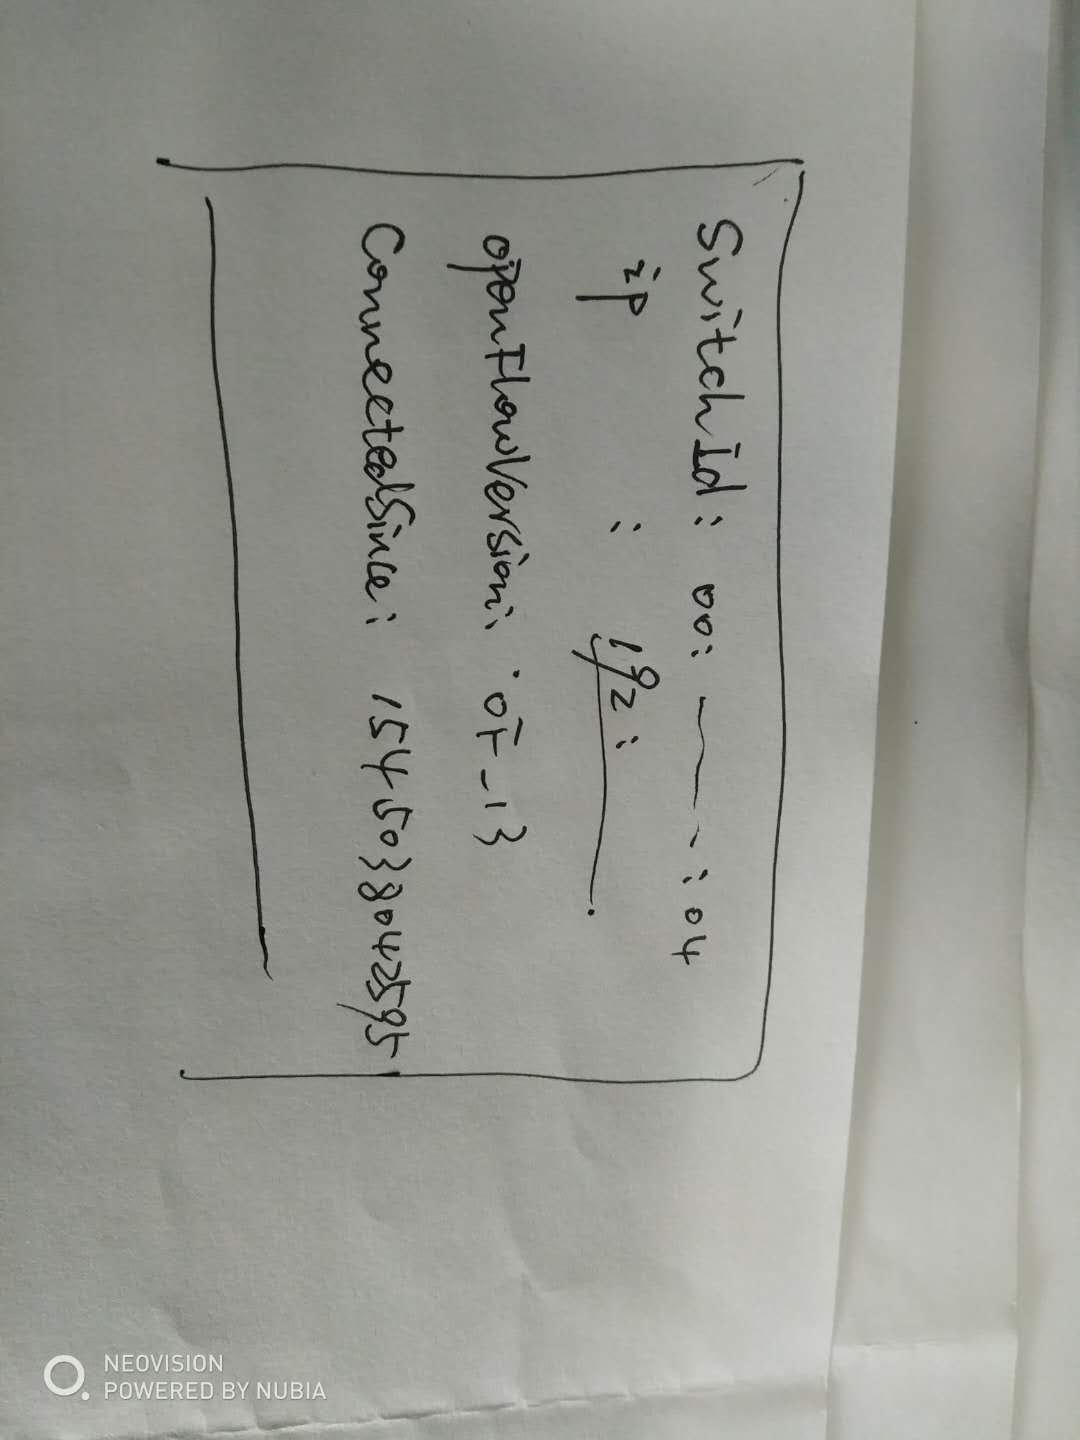 SwitchId: 00: ——— - : 04
ip : 192:
openFlowVersion: OF_13
ConnectedSince: 1545038042595
NEOVISION
POWERED BY NUBIA